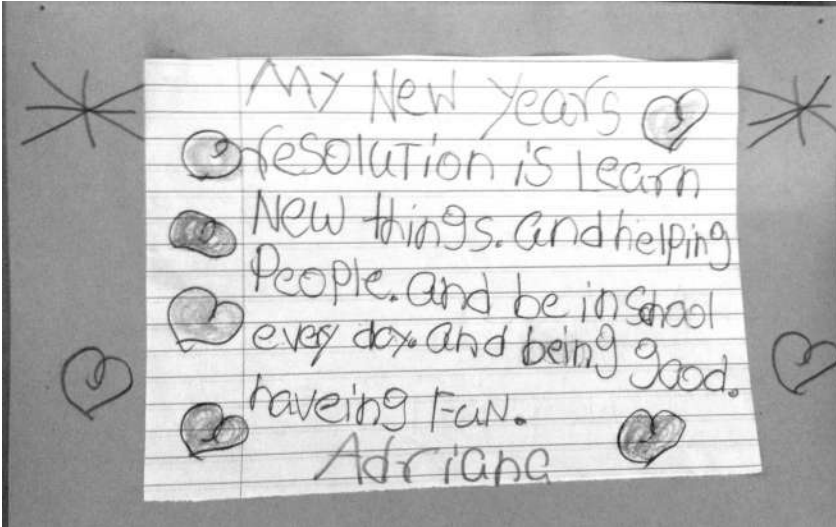 My New Years
resolution is Learn
New things. and helping
People. and be in School
every day. and being good.
haveing Fun.
Adriana